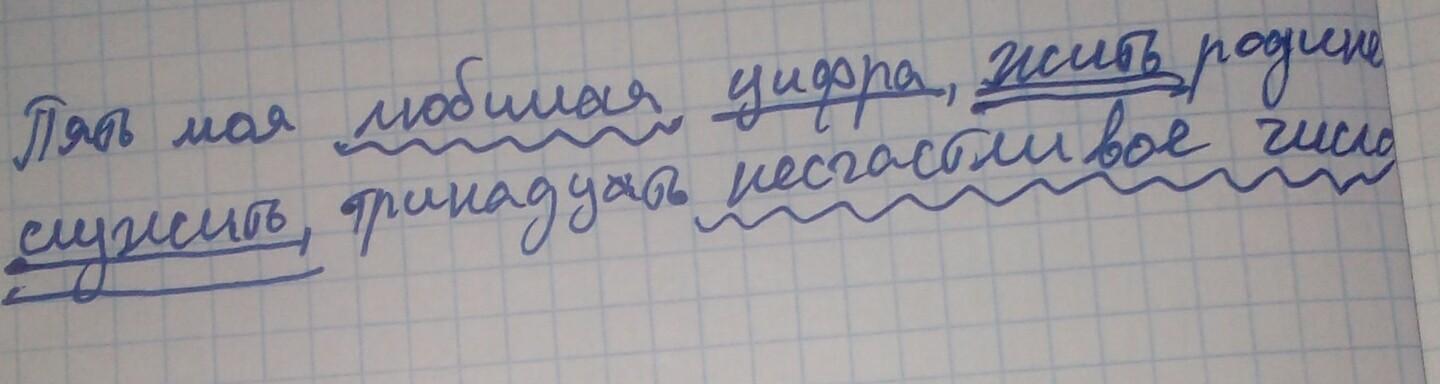 Пять моя любимая цифра, жить родине
служить, тринадцать несчастливое число